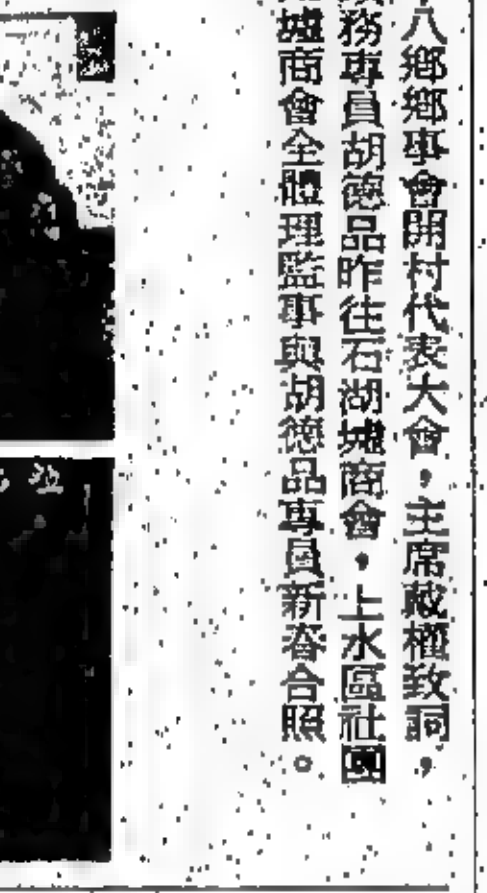 八鄉鄉事會開村代表大會,主席戴權致詞,
務專員胡德品昨往石湖墟商會,上水區社團
墟商會全體理監事與胡德品專員新春合照。